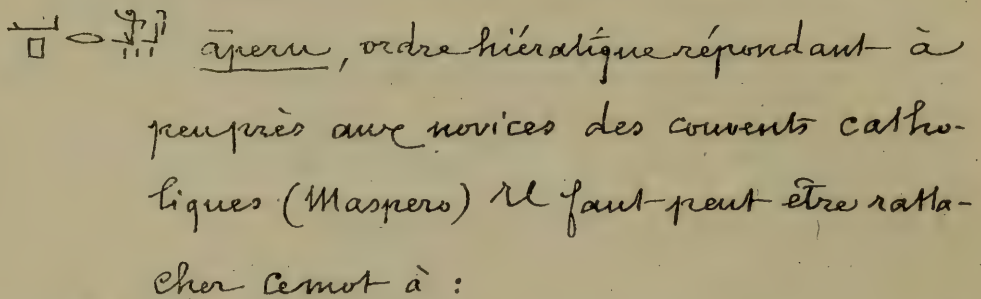 āperu, ordre hiératique répondant à
peuprès aux novices des couvents catho-
liques (Maspero) Il faut peut être ratta-
cher ce mot à :